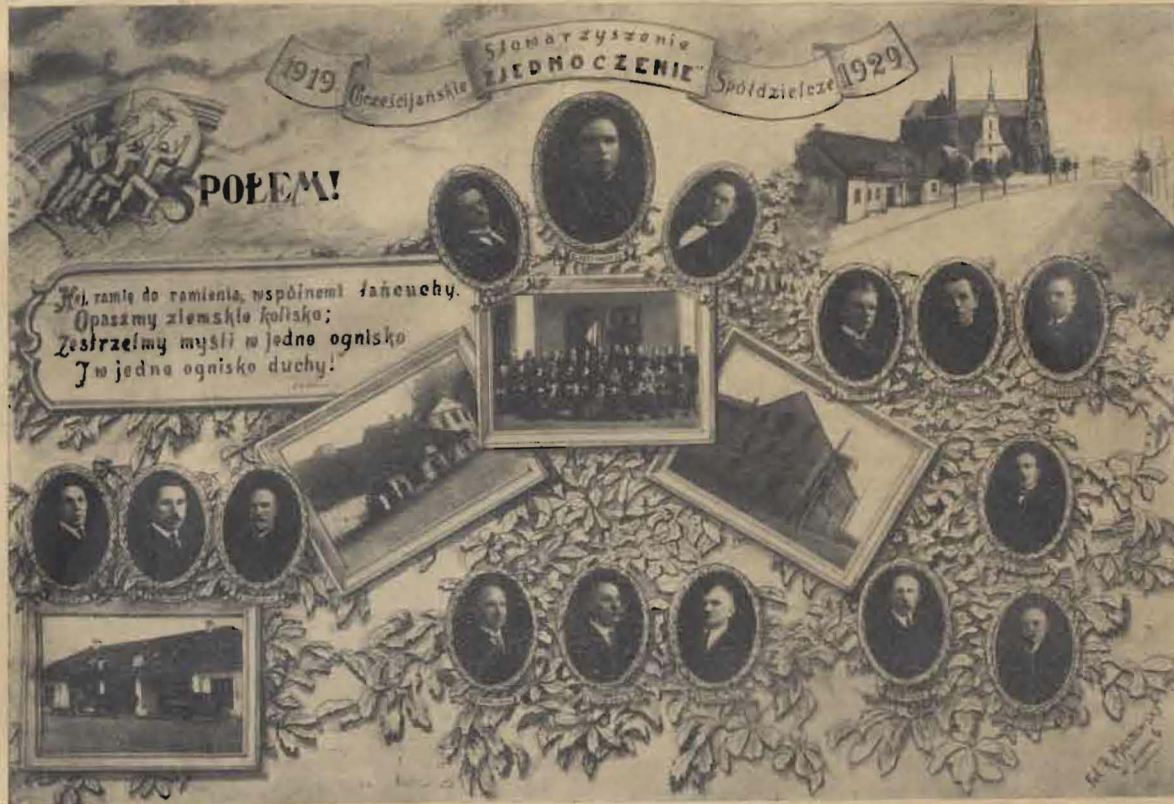 1919
Chrześcijańskie
Stowarzyszenie
"ZJEDNOCZENIE"
Spółdzielcze
1929
SPOŁEM!
Hej, ramię do ramienia, wspólnemi łańcuchy.
Opaszmy ziemskie kolisko;
Zestrzelmy myśli w jedno ognisko
I w jedno ognisko duchy!